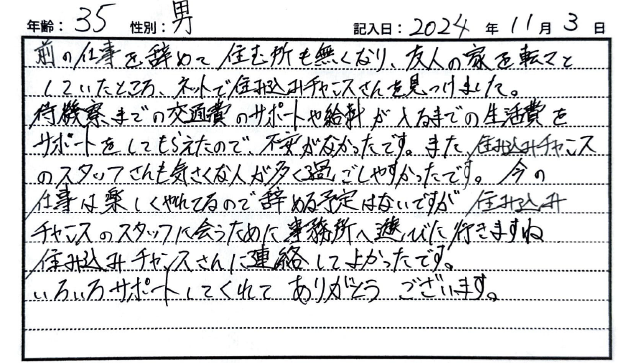 年齢：35 性別：男 記入日：2024 年 11 月 3 日
前の仕事を辞めて住む所も無くなり、友人の家を転々と
していたところ、ネットで住み込みチャンスさんを見つけました。
待機寮までの交通費のサポートや給料が入るまでの生活費を
サポートをしてもらえたので、不安がなかったです。また住み込みチャンス
のスタッフさんも気さくな人が多く過ごしやすかったです。今の
仕事は楽しくやれてるので辞める予定はないですが住み込み
チャンスのスタッフに会うために事務所へ遊びに行きますね
住み込みチャンスさんに連絡してよかったです。
いろいろサポートしてくれてありがとうございます。